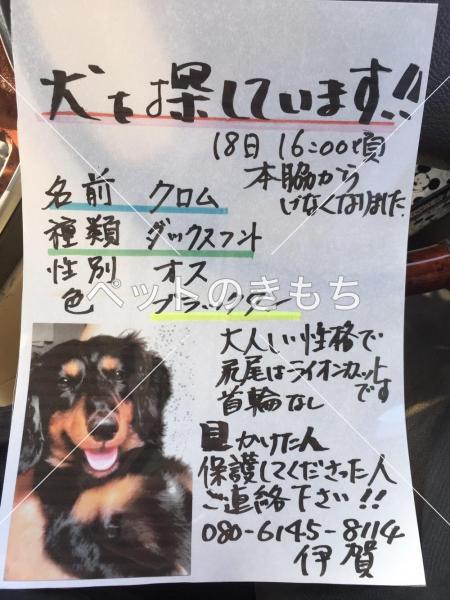 犬を探しています!!
18日 16:00頃
本脇から
いなくなりました
名前 クロム
種類 ダックスフント
性別 オス
色 ブラックタン
ペットのきもち
大人しい性格で
尻尾はライオンカットです
首輪なし
見かけた人
保護してくださった人
ご連絡下さい!!
080-6145-8114
伊賀